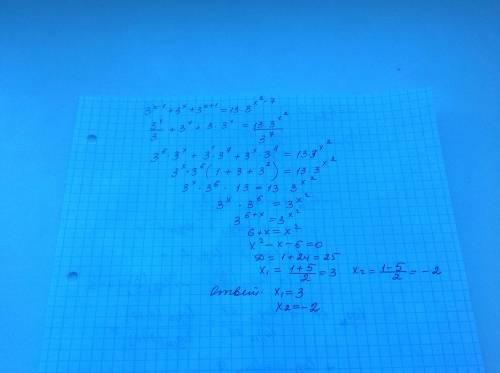 3^{x-1} + 3^x + 3^{x+1} = 13 · 3^{x^2-7}
3^x/3 + 3^x + 3 · 3^x = 13 · 3^{x^2}/3^7
3^6 · 3^x + 3^x · 3^7 + 3^x · 3^8 = 13 · 3^{x^2}
3^x · 3^6 (1 + 3 + 3^2) = 13 · 3^{x^2}
3^x · 3^6 · 13 = 13 · 3^{x^2}
3^x · 3^6 = 3^{x^2}
3^{6+x} = 3^{x^2}
6 + x = x^2
x^2 - x - 6 = 0
D = 1 + 24 = 25
x_1 = (1+5)/2 = 3 x_2 = (1-5)/2 = -2
Ответ: x_1 = 3
x_2 = -2